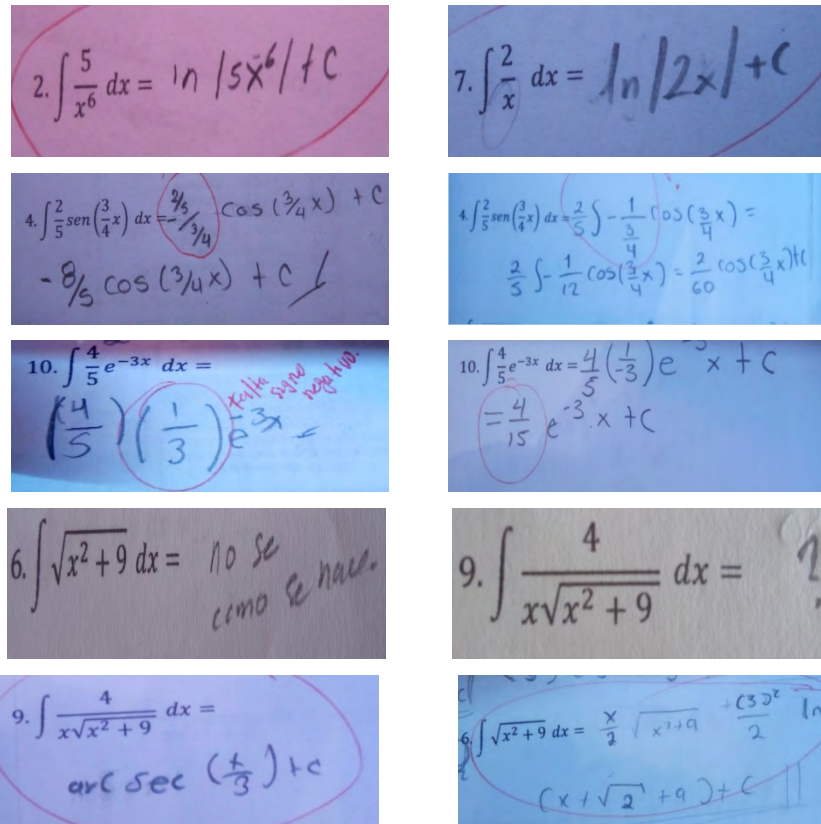 2. ∫ 5/x⁶ dx = ln |5x⁶| + C
7. ∫ 2/x dx = ln |2x| + C
4. ∫ 2/5 sen(3/4 x) dx = - 2/5 / 3/4 cos (3/4 x) + C
- 8/5 cos (3/4 x) + C
4. ∫ 2/5 sen(3/4 x) dx = 2/5 ∫ - 1/(3/4) cos(3/4 x) =
2/5 ∫ - 1/12 cos(3/4 x) = 2/60 cos(3/4 x) + C
10. ∫ 4/5 e⁻³ˣ dx =
falta signo negativo.
(4/5) (1/3) e⁻³ˣ
10. ∫ 4/5 e⁻³ˣ dx = 4/5 (1/-3) e⁻³ x + C
= 4/15 e⁻³ · x + C
6. ∫ √(x² + 9) dx = no se
como se hace.
9. ∫ 4/(x√(x² + 9)) dx = ?
9. ∫ 4/(x√(x² + 9)) dx =
arc sec (x/3) + c
6. ∫ √(x² + 9) dx = x/2 √(x²+9) + (3)²/2 ln
(x + √2 + 9) + C